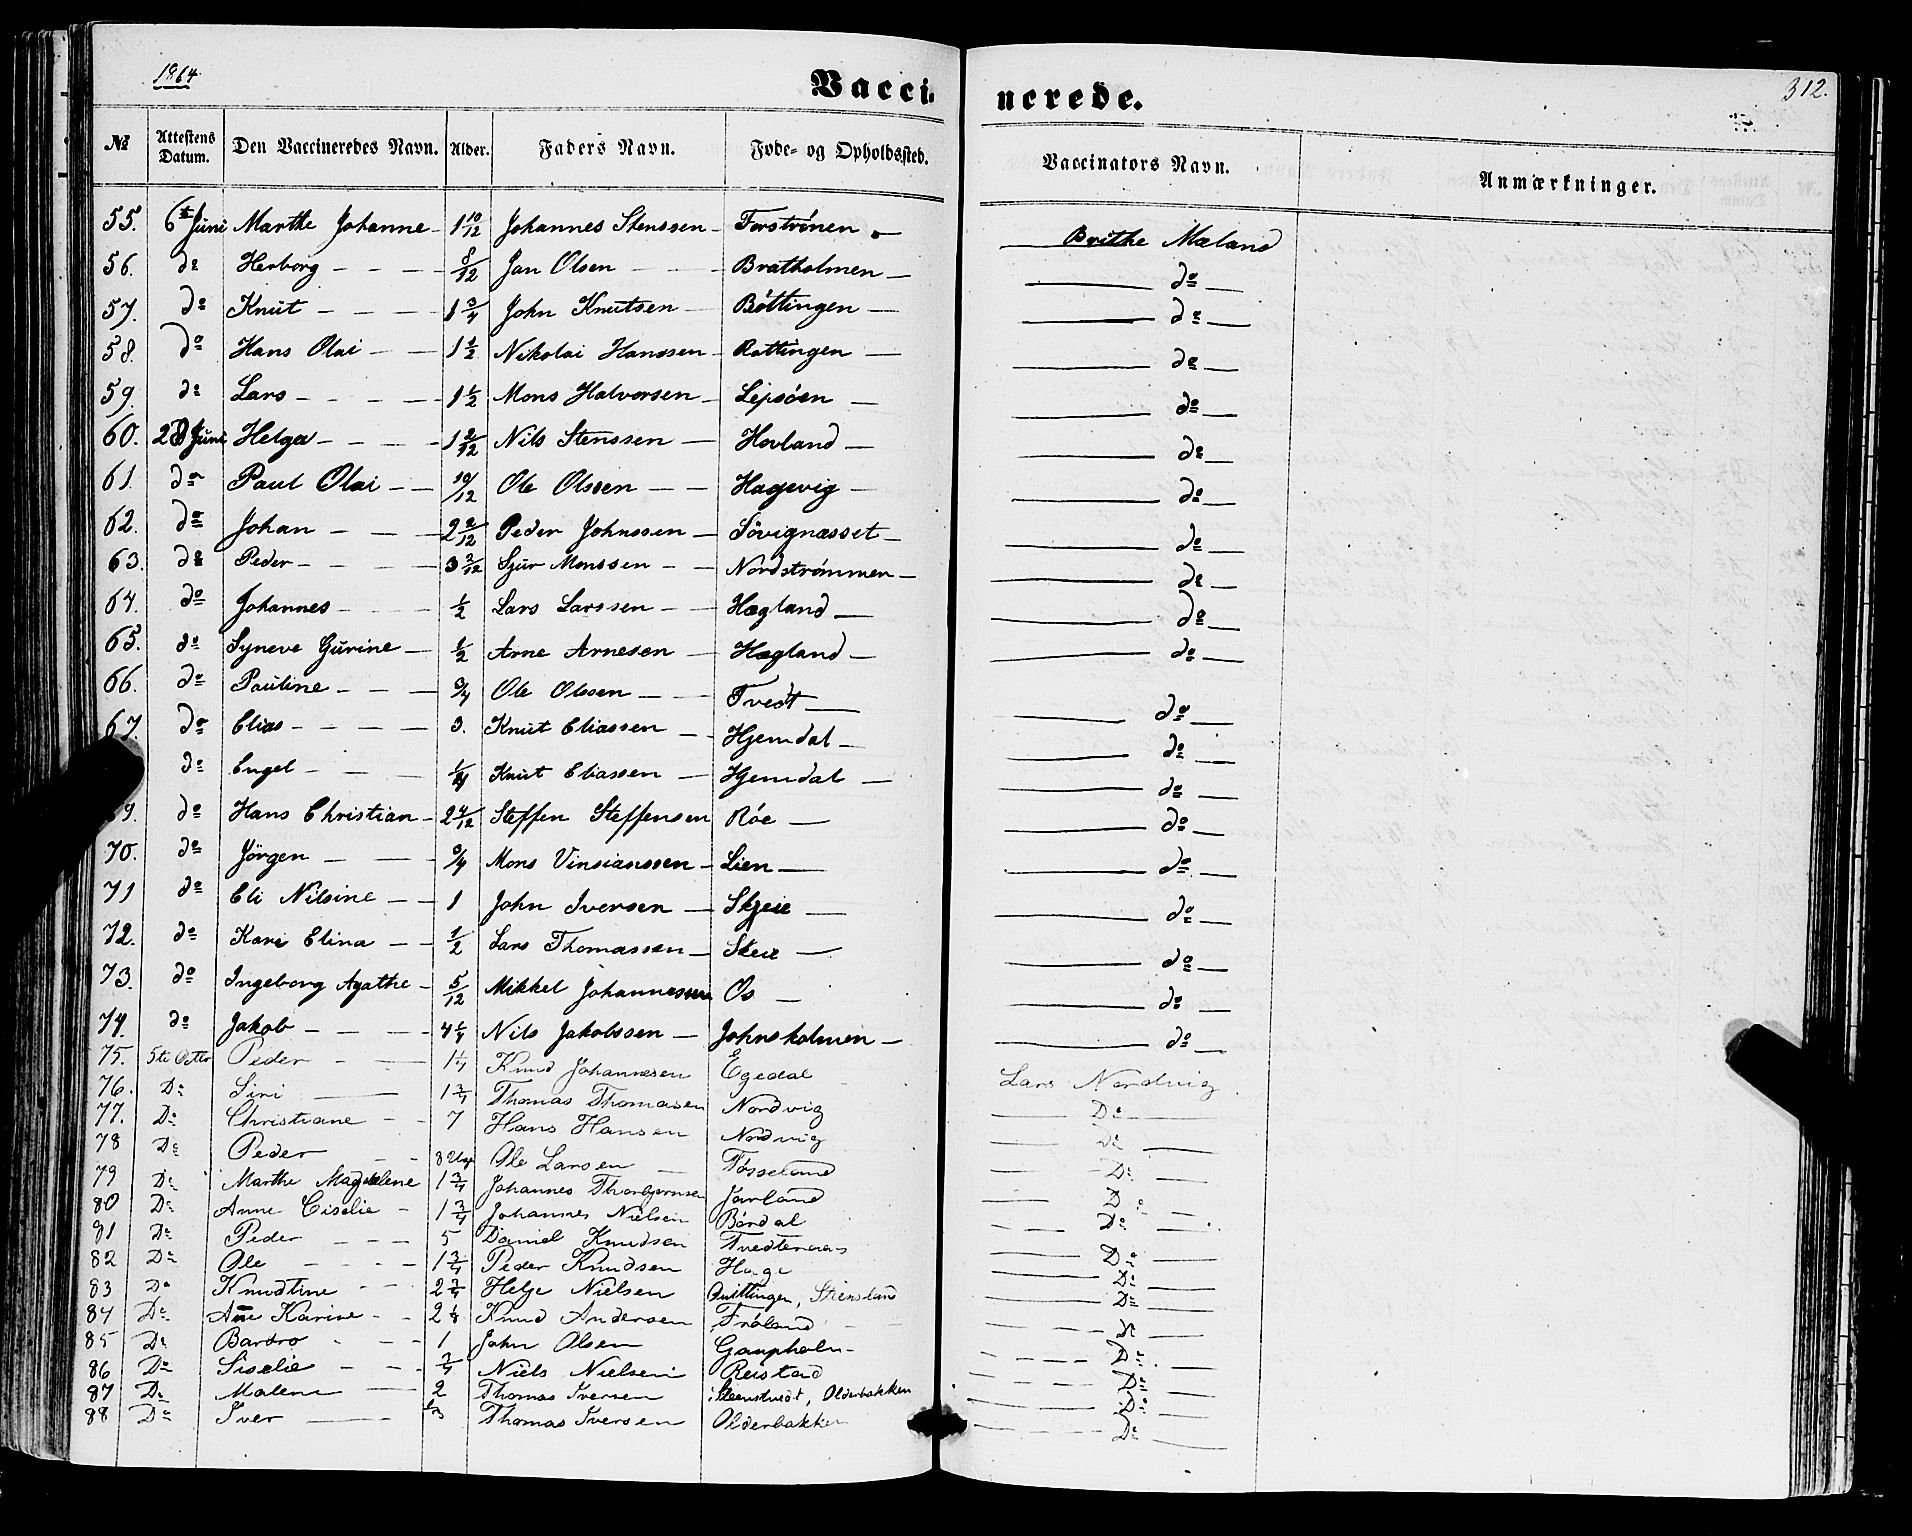 1864
Vaccinerede.
312.
№ Attestens Datum. Den Vaccineredes Navn. Alder. Faders Navn. Føde- og Opholdssted. Vaccinators Navn. Anmærkninger.
55. 6te Juni Marthe Johanne 1 10/12 Johannes Stenssen Forströnen Brithe Mæland
56. do Herborg 8/12 Jan Olsen Bratholmen do
57. do Knut 1 3/4 John Knutsen Böttingen do
58. do Hans Olai 1 1/2 Nikolai Hanssen Rottingen do
59. do Lars 1 1/2 Mons Halvorsen Lepsöen do
60. 28 Juni Helga 1 2/12 Nils Stenssen Hovland do
61. do Paul Olai 10/12 Ole Olssen Hagevig do
62. do Johan 2 2/12 Peder Johnssen Sövignæsset do
63. do Peder 3 2/12 Sjur Monssen Nordströmmen do
64. do Johannes 1/2 Lars Larssen Hægland do
65. do Syneve Gurine 1/2 Arne Arnesen Hægland do
66. do Pauline 3/4 Ole Olssen Tvedt do
67. do Elias 3. Knut Eliassen Hjemdal do
do Engel 1/4 Knut Eliassen Hjemdal do
69. do Hans Christian 2 4/12 Steffen Steffensen Röe do
70. do Jörgen 3/4 Mons Vinsianssen Lien do
71 do Eli Nilsine 1 John Iversen Skjeie do
72. do Kari Elina 1/2 Lars Thomassen Skeie do
73. do Ingeborg Agathe 5/12 Mikkel Johannessen Os do
74. do Jakob 4 1/4 Nils Jakobssen Johnsholmen do
75. 5te Octbr Peder 1 1/4 Knud Johannesen Egedal Lars Nordvig
76. Do Siri 1 3/4 Thomas Thomasen Nordvig Do
77. Do Christiane 7 Hans Hansen Nordvig Do
78 Do Peder 8 Uge Ole Larsen Tösseland Do
79 Do Marthe Magdalene 1 3/4 Johannes Thorbjørnsen Jarland Do
80 Do Anne Ciselie 1 3/4 Johannes Nielsen Bördal Do
81 Do Peder 5 Daniel Knudsen Tvedteraas Do
82 Do Ole 1 3/4 Peder Knudsen Hage Do
83 Do Knudtine 2 3/4 Helje Nielsen Qvittingen, Stiensland Do
84 Do Ane Karine 2 1/4 Knud Andersen Fröland do
85 Do Bardro 1 John Olsen Gaupholm Do
86 Do Siselie 3/4 Niels Nielsen Reistad Do
87 Do Malene 2 Thomas Iversen Steenstvedt, Olderbakken Do
88 Do Iver 1/3 Thomas Iversen Olderbakken Do